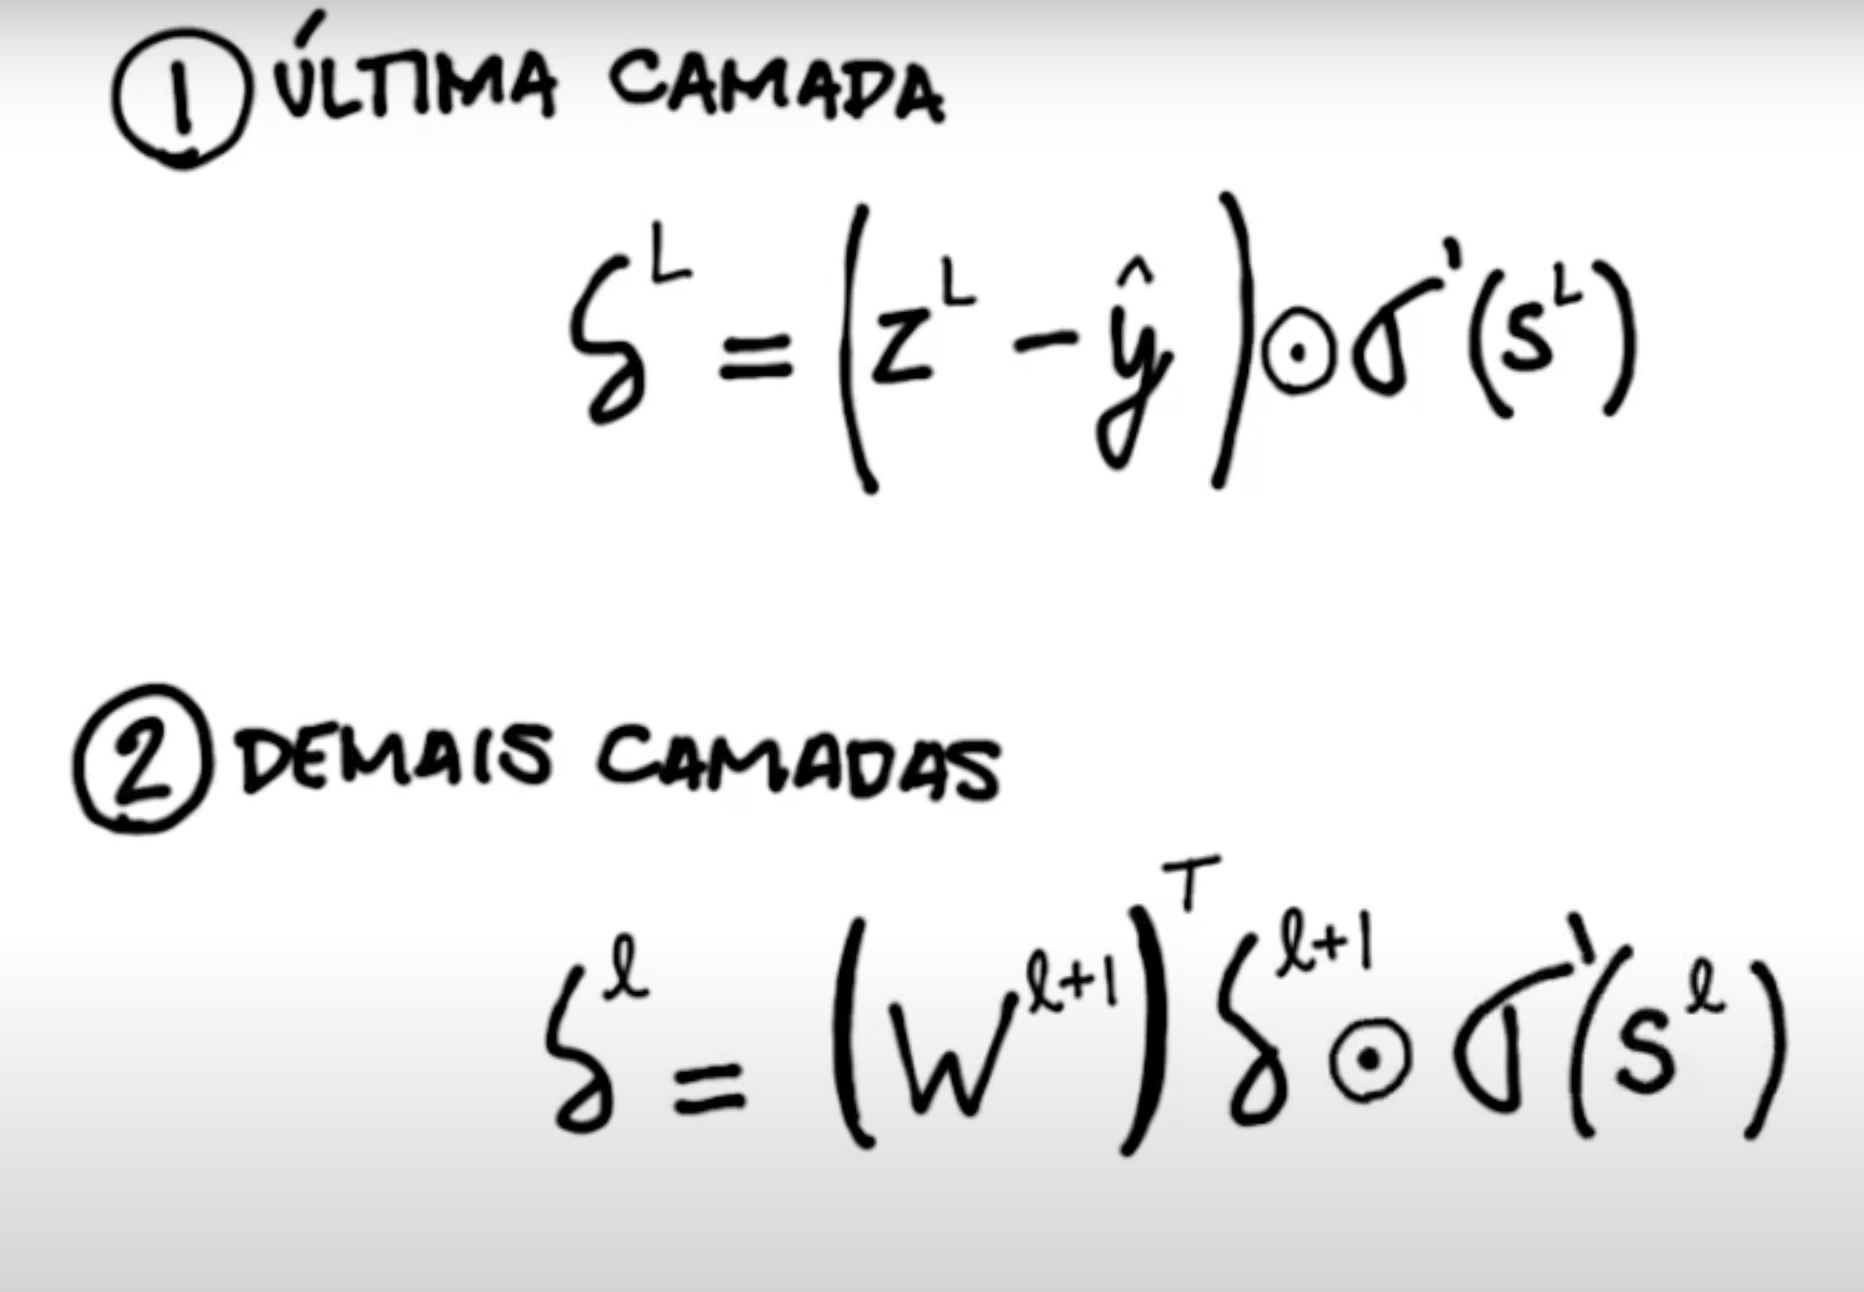 ① ÚLTIMA CAMADA
δ^L = (z^L − ŷ) ⊙ σ'(s^L)
② DEMAIS CAMADAS
δ^ℓ = (W^{ℓ+1})^T δ^{ℓ+1} ⊙ σ'(s^ℓ)